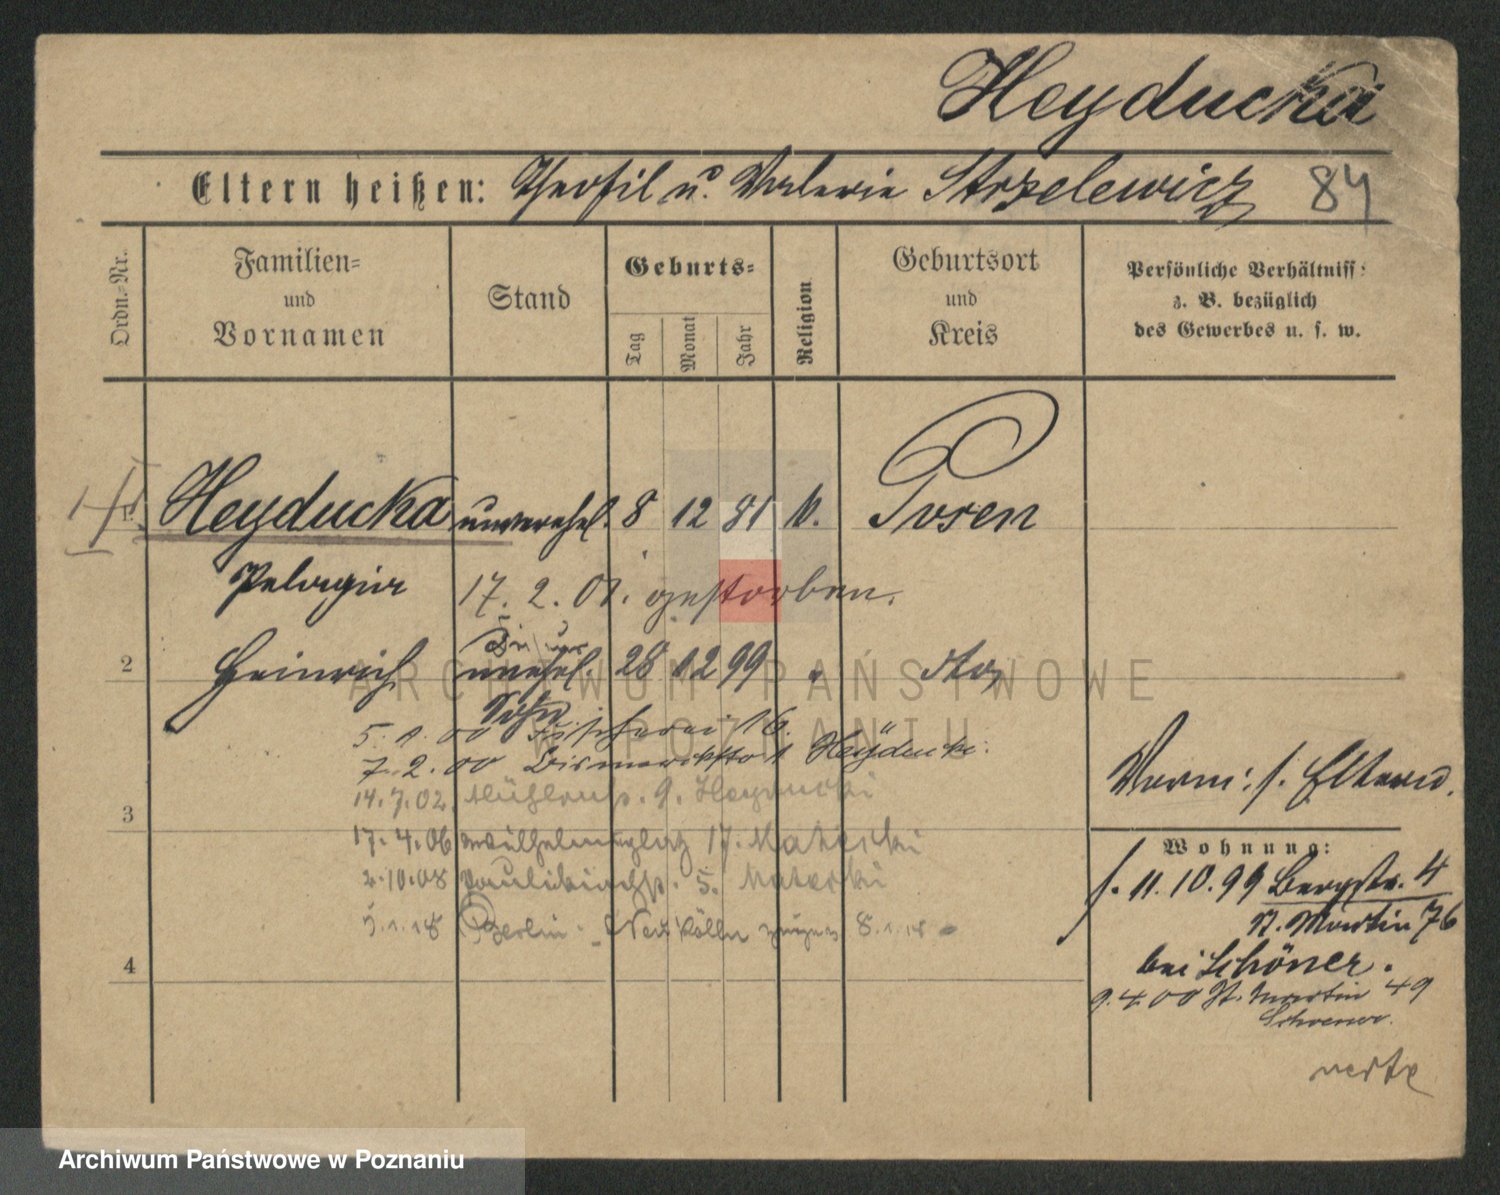 Heyducka
Eltern heißen: Theofil u. Valerie Strzelewicz 84
Ordn.-Nr.
Familien-
und
Vornamen
Stand
Geburts-
Tag
Monat
Jahr
Religion
Geburtsort
und
Kreis
Persönliche Verhältniss:
z. B. bezüglich
des Gewerbes u. s. w.
Heyducka unverehel. 8 12 81 k. Posen
Pelagia 17. 2. 01. gestorben.
2 Heinrich unehel. 28 12 99 " dto
Sohn
5. 1. 00 Fischerei 16.
7. 2. 00 Bismarckstr 1 Heyducki.
14. 7. 02. Mühlenstr. 9. Heyducki
3
17. 4. 06 Wilhelmsplatz 17. Matecki
2. 10. 08 Paulikirchstr. 5. Matecki
5. 1. 18 Berlin - Neukölln 8. 1. 18
4
Vorm: s. Eltern.
Wohnung:
s. 11. 10. 99 Bergstr. 4
St. Martin 76
bei Schöner.
9. 4. 00 St. Martin 49
Schoener.
verte
ARCHIWUM PAŃSTWOWE
W POZNANIU
Archiwum Państwowe w Poznaniu